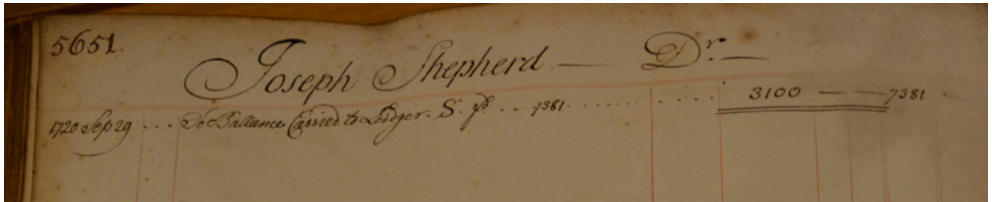 5651.
Joseph Shepherd — Dr. —
1720 Sep 29 ... To Ballance Carried to Ledger. S. fo. .. 7381. ........... 3100 — — 7381